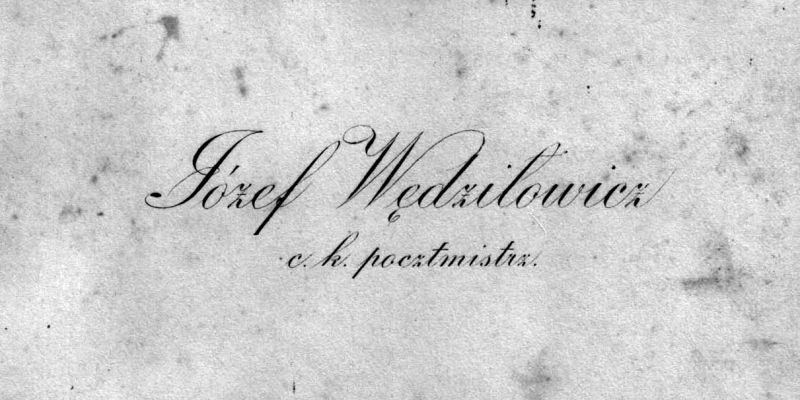 Józef Wędziłowicz
c. k. pocztmistrz.